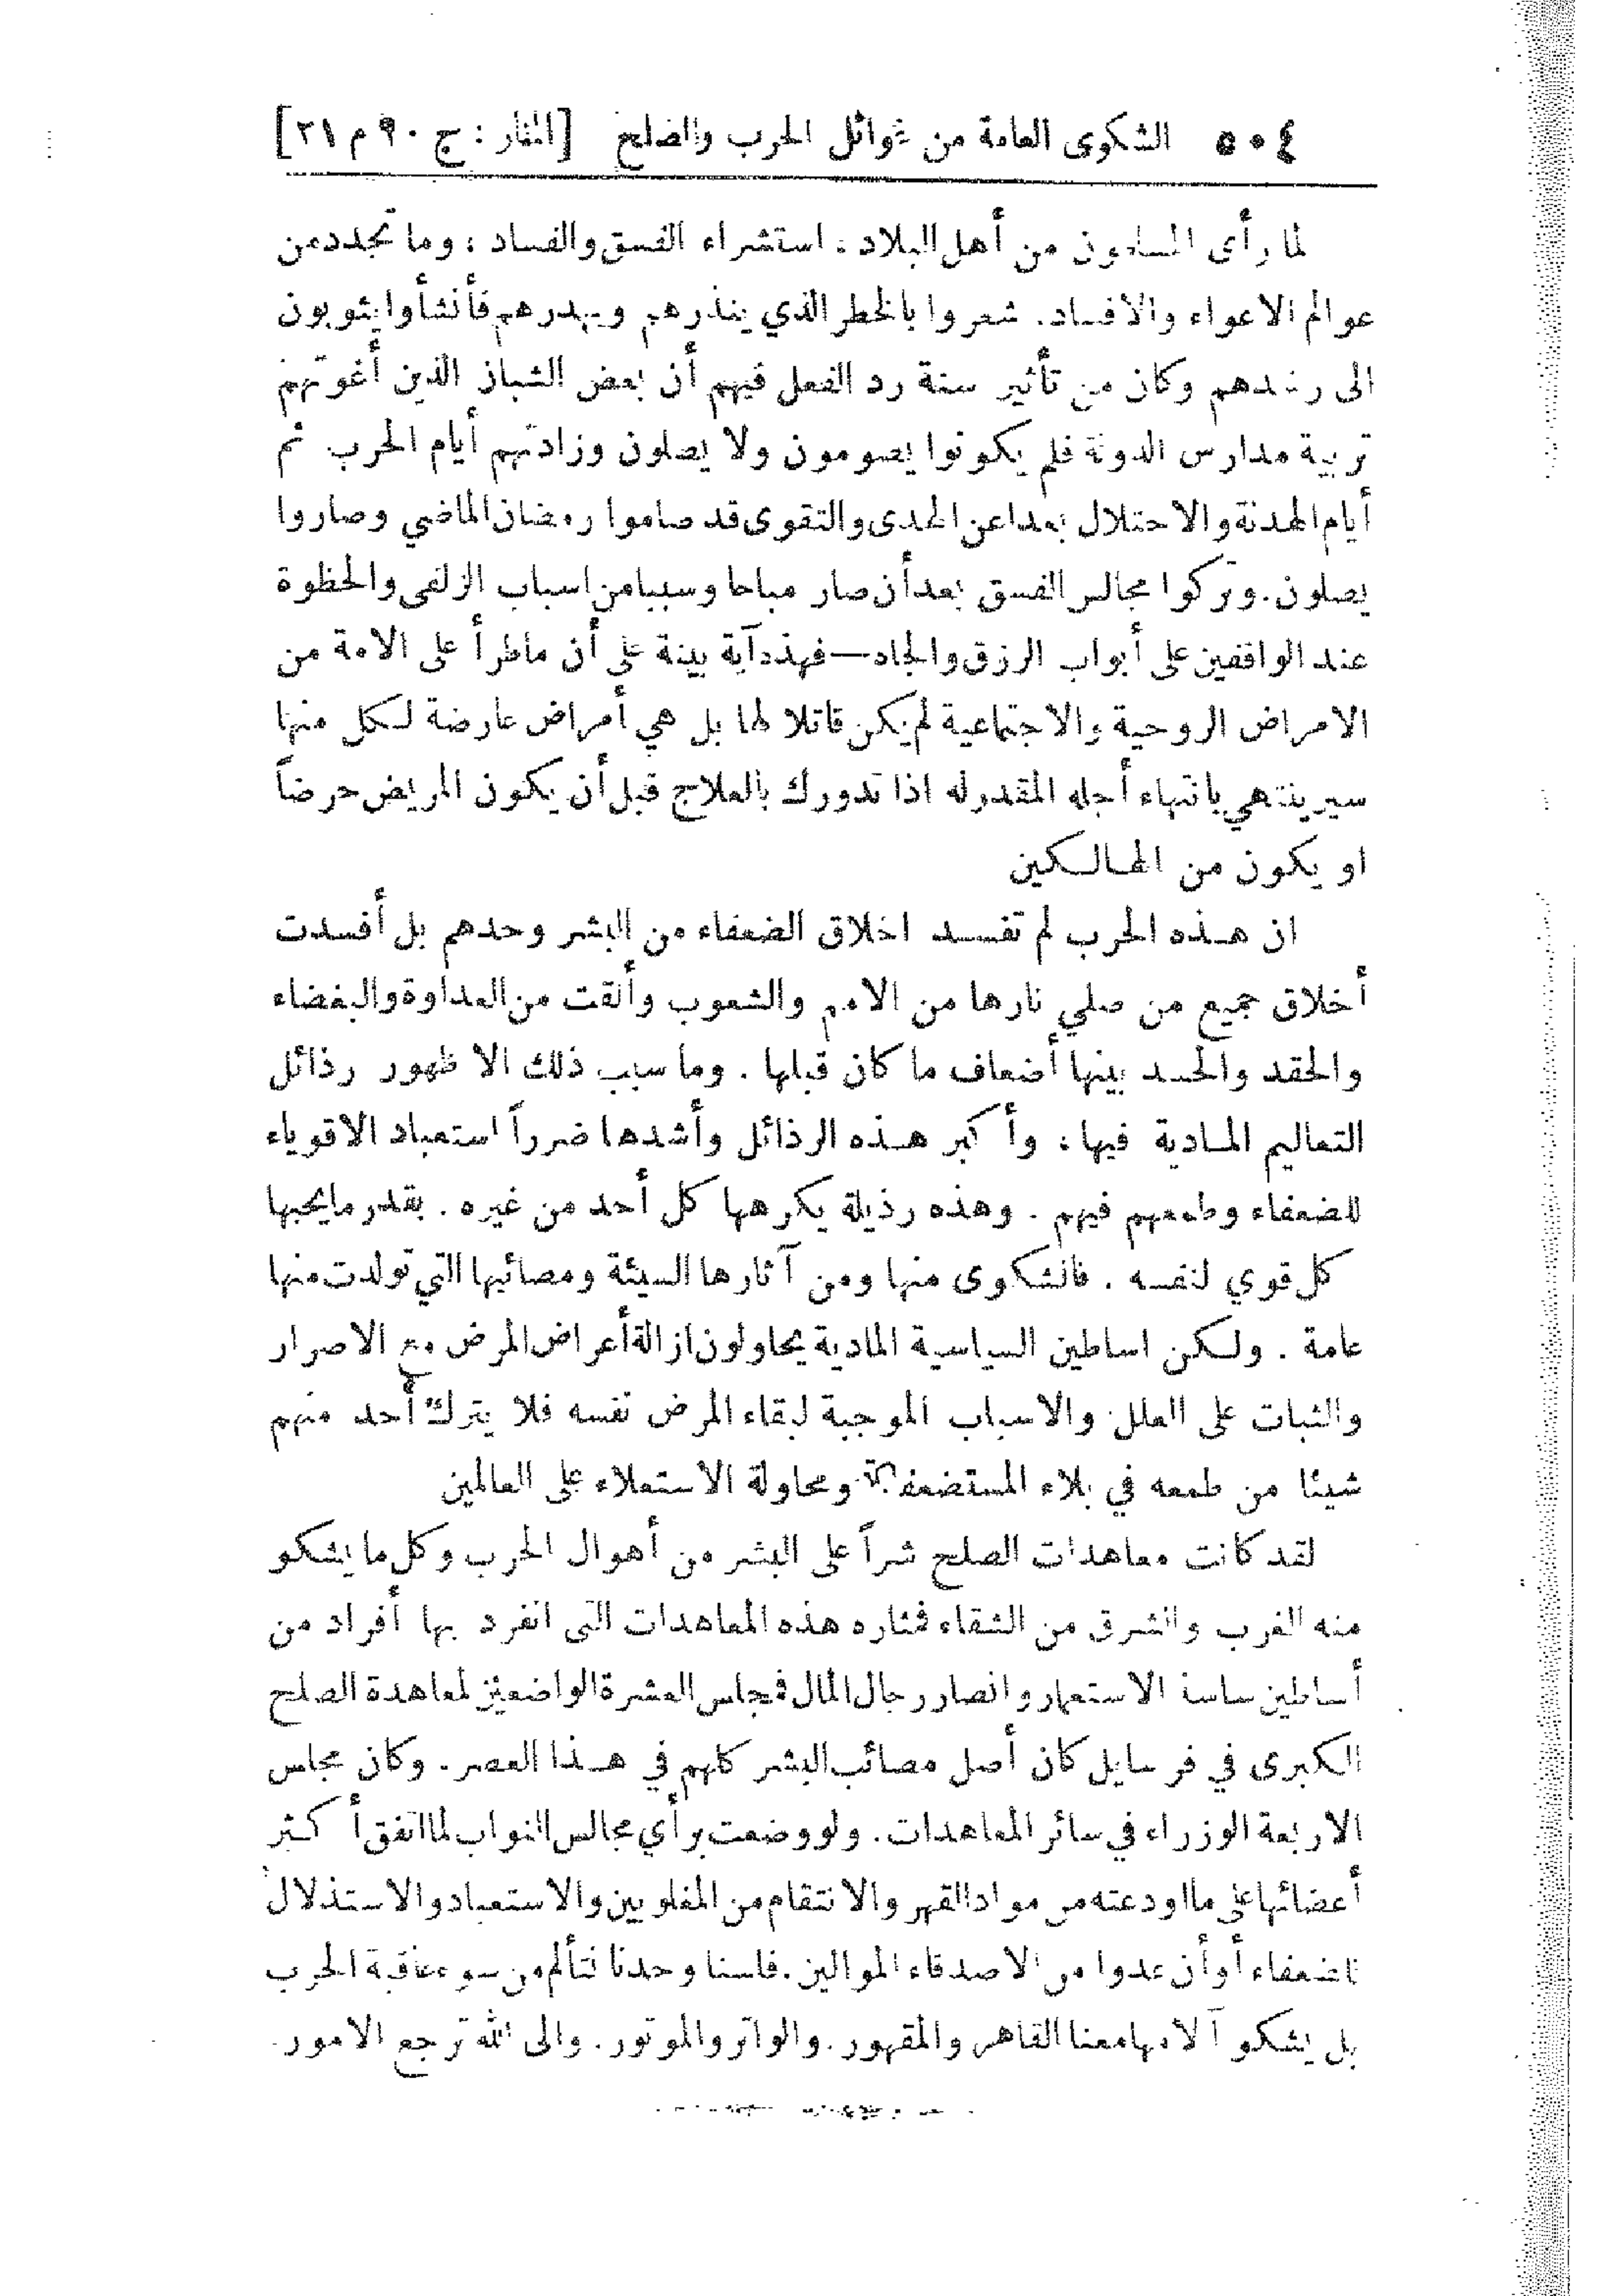 ٥٠٤ الشكوى العامة من غوائل الحرب والصلح [المنار: ج ٩٠ م ٢١]
لما رأى المسلمون من أهل البلاد، استشراء الفسق والفساد، وما تجدد من
عوالم الاغواء والافساد. شعروا بالخطر الذي ينذرهم ويهددهم فأنشأوا يثوبون
الى رشدهم وكان من تأثير سنة رد الفعل فيهم أن بعض الشبان الذين أغوتهم
تربية مدارس الدولة فلم يكونوا يصومون ولا يصلون وزادتهم أيام الحرب ثم
أيام الهدنة والاحتلال بعدا عن الهدى والتقوى قد صاموا رمضان الماضي وصاروا
يصلون. وتركوا مجالس الفسق بعد أن صار مباحا وسببا من اسباب الزلفى والحظوة
عند الواقفين على أبواب الرزق والجاه — فهذه آية بينة على أن ماطرأ على الامة من
الامراض الروحية والاجتماعية لم يكن قاتلا لها بل هي أمراض عارضة لكل منها
سير ينتهي بانتهاء أجله المقدر له اذا تدورك بالعلاج قبل أن يكون المريض حرضاً
او يكون من الهالكين
ان هذه الحرب لم تفسد اخلاق الضعفاء من البشر وحدهم بل أفسدت
أخلاق جميع من صلي نارها من الامم والشعوب وألقت من العداوة والبغضاء
والحقد والحسد بينها أضعاف ما كان قبلها. وما سبب ذلك الا ظهور رذائل
التعاليم المادية فيها، وأكبر هذه الرذائل وأشدها ضرراً استعباد الاقوياء
للضعفاء وطمعهم فيهم. وهذه رذيلة يكرهها كل أحد من غيره. بقدر مايحبها
كل قوي لنفسه. فالشكوى منها ومن آثارها السيئة ومصائبها التي تولدت منها
عامة. ولكن اساطين السياسية المادية يحاولون ازالة أعراض المرض مع الاصرار
والثبات على العلل والاسباب الموجبة لبقاء المرض نفسه فلا يترك أحد منهم
شيئا من طمعه في بلاء المستضعفين ومحاولة الاستعلاء على العالمين
لقد كانت معاهدات الصلح شراً على البشر من أهوال الحرب وكل ما يشكو
منه الغرب والشرق من الشقاء فمثاره هذه المعاهدات التى انفرد بها أفراد من
أساطين ساسة الاستعمار وانصار رجال المال فمجلس العشرة الواضعين لمعاهدة الصلح
الكبرى في فرسايل كان أصل مصائب البشر كلهم في هذا العصر. وكان مجلس
الاربعة الوزراء في سائر المعاهدات. ولو وضعت برأي مجالس النواب لما اتفق أكثر
أعضائها على ما اودعته من مواد القهر والانتقام من المغلوبين والاستعباد والاستذلال
للضعفاء أو أن عدوا من الاصدقاء الموالين. فلسنا وحدنا نتألم من سوء عاقبة الحرب
بل يشكو آلامها معنا القاهر والمقهور. والواتر والموتور. والى الله ترجع الامور.